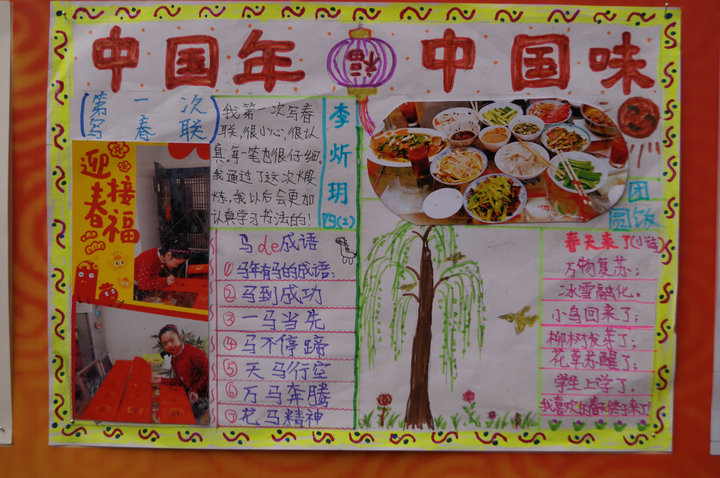 中国年 中国味
福
第一次
写春联
我第一次写春
联,很小心,很认
真,每一笔也很仔细,
我通过了这次锻
炼,我以后会更加
认真学习书法的!
李炘玥
四(2)
迎春
接福
团
圆饭
马de成语
①马年有马的成语:
②马到成功
③一马当先
④马不停蹄
⑤天马行空
⑥万马奔腾
⑦龙马精神
春天来了(小诗)
万物复苏;
冰雪融化。
小鸟回来了;
柳树发芽了;
花草苏醒了;
学生上学了;
我喜欢的春天终于来了!